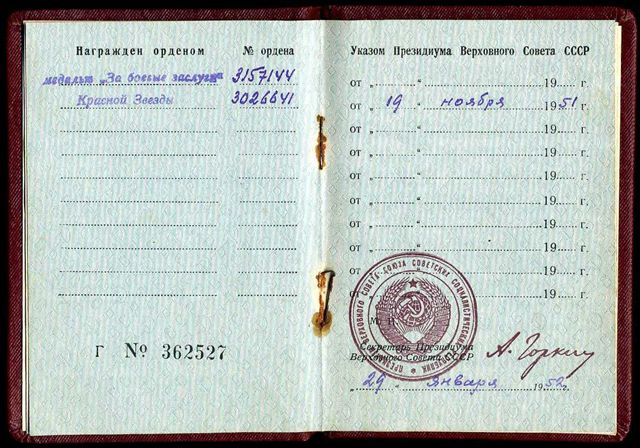 Награжден орденом № ордена
медалью „За боевые заслуги" 3157144
Красной Звезды 3026641
Г № 362527
Указом Президиума Верховного Совета СССР
от „ “ 19 г.
от „ 19 “ ноября 1951 г.
от „ “ 19 г.
от „ “ 19 г.
от „ “ 19 г.
от „ “ 19 г.
от „ “ 19 г.
от „ “ 19 г.
от „ “ 19 г.
от „ 19 г.
М.
Секретарь Президиума
Верховного Совета СССР А. Горкин
„29 “ января 1952 г.
ВЕРХОВНОГО СОВЕТА СОЮЗА СОВЕТСКИХ СОЦИАЛИСТИЧЕСКИХ